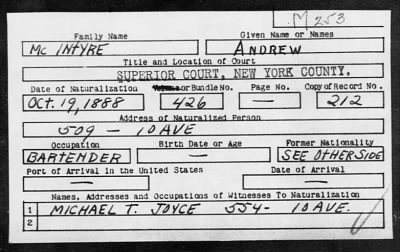 M 253
Family Name Given Name or Names
Mc INTYRE ANDREW
Title and Location of Court
SUPERIOR COURT, NEW YORK COUNTY.
Date of Naturalization Volume or Bundle No. Page No. Copy of Record No.
OCT. 19, 1888 426 — 212
Address of Naturalized Person
509 — 10 AVE
Occupation Birth Date or Age Former Nationality
BARTENDER — SEE OTHERSIDE
Port of Arrival in the United States Date of Arrival
— —
Names, Addresses and Occupations of Witnesses To Naturalization
1 MICHAEL T. JOYCE 554- 10 AVE.
2